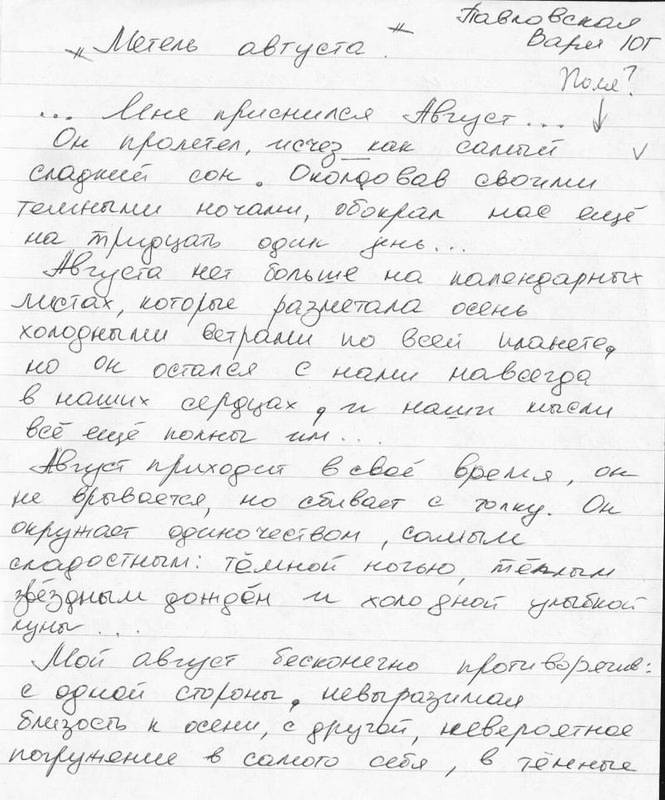 Павловская
Варя 10Г
"Метель августа"
Поля?
... Мне приснился Август...
Он пролетел, исчез как самый
сладкий сон. Околдовав своими
темными ночами, обокрал нас ещё
на тридцать один день...
Августа нет больше на календарных
листах, которые разметала осень
холодными ветрами по всей планете,
но он остался с нами навсегда
в наших сердцах, и наши мысли
всё ещё полны им...
Август приходит в своё время, он
не врывается, но сбивает с толку. Он
окружает одиночеством, самым
сладостным: тёмной ночью, тёплым
звёздным дождём и холодной улыбкой
луны...
Мой август бесконечно противоречив:
с одной стороны, невыразимая
близость к осени, с другой, невероятное
погружение в самого себя, в тённые